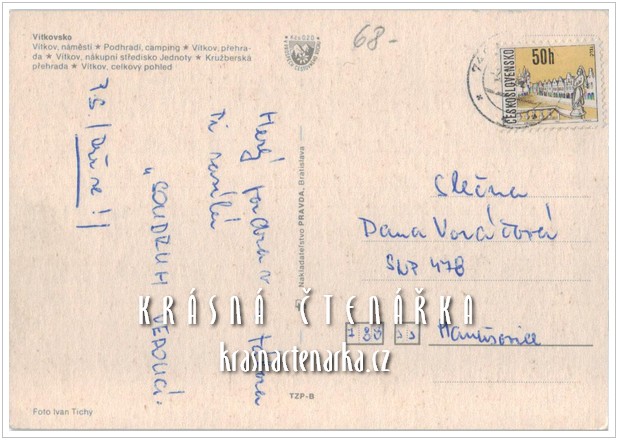 Vítkovsko
Vítkov, náměstí ★ Podhradí, camping ★ Vítkov, přehra-
da ★ Vítkov, nákupní středisko Jednoty ★ Kružberská
přehrada ★ Vítkov, celkový pohled
68-
ČESKOSLOVENSKO
50h
Nakladatelství PRAVDA, Bratislava
Hezký pozdrav z tábora
Ti zasílá
„SOUDRUH VEDOUCÍ“
P.S./ Uč se!!
Slečna
Dana Voráčová
SNP 478
788 33 Hanušovice
KRÁSNÁ ČTENÁŘKA
krasnactenarka.cz
TZP-B
Foto Ivan Tichý